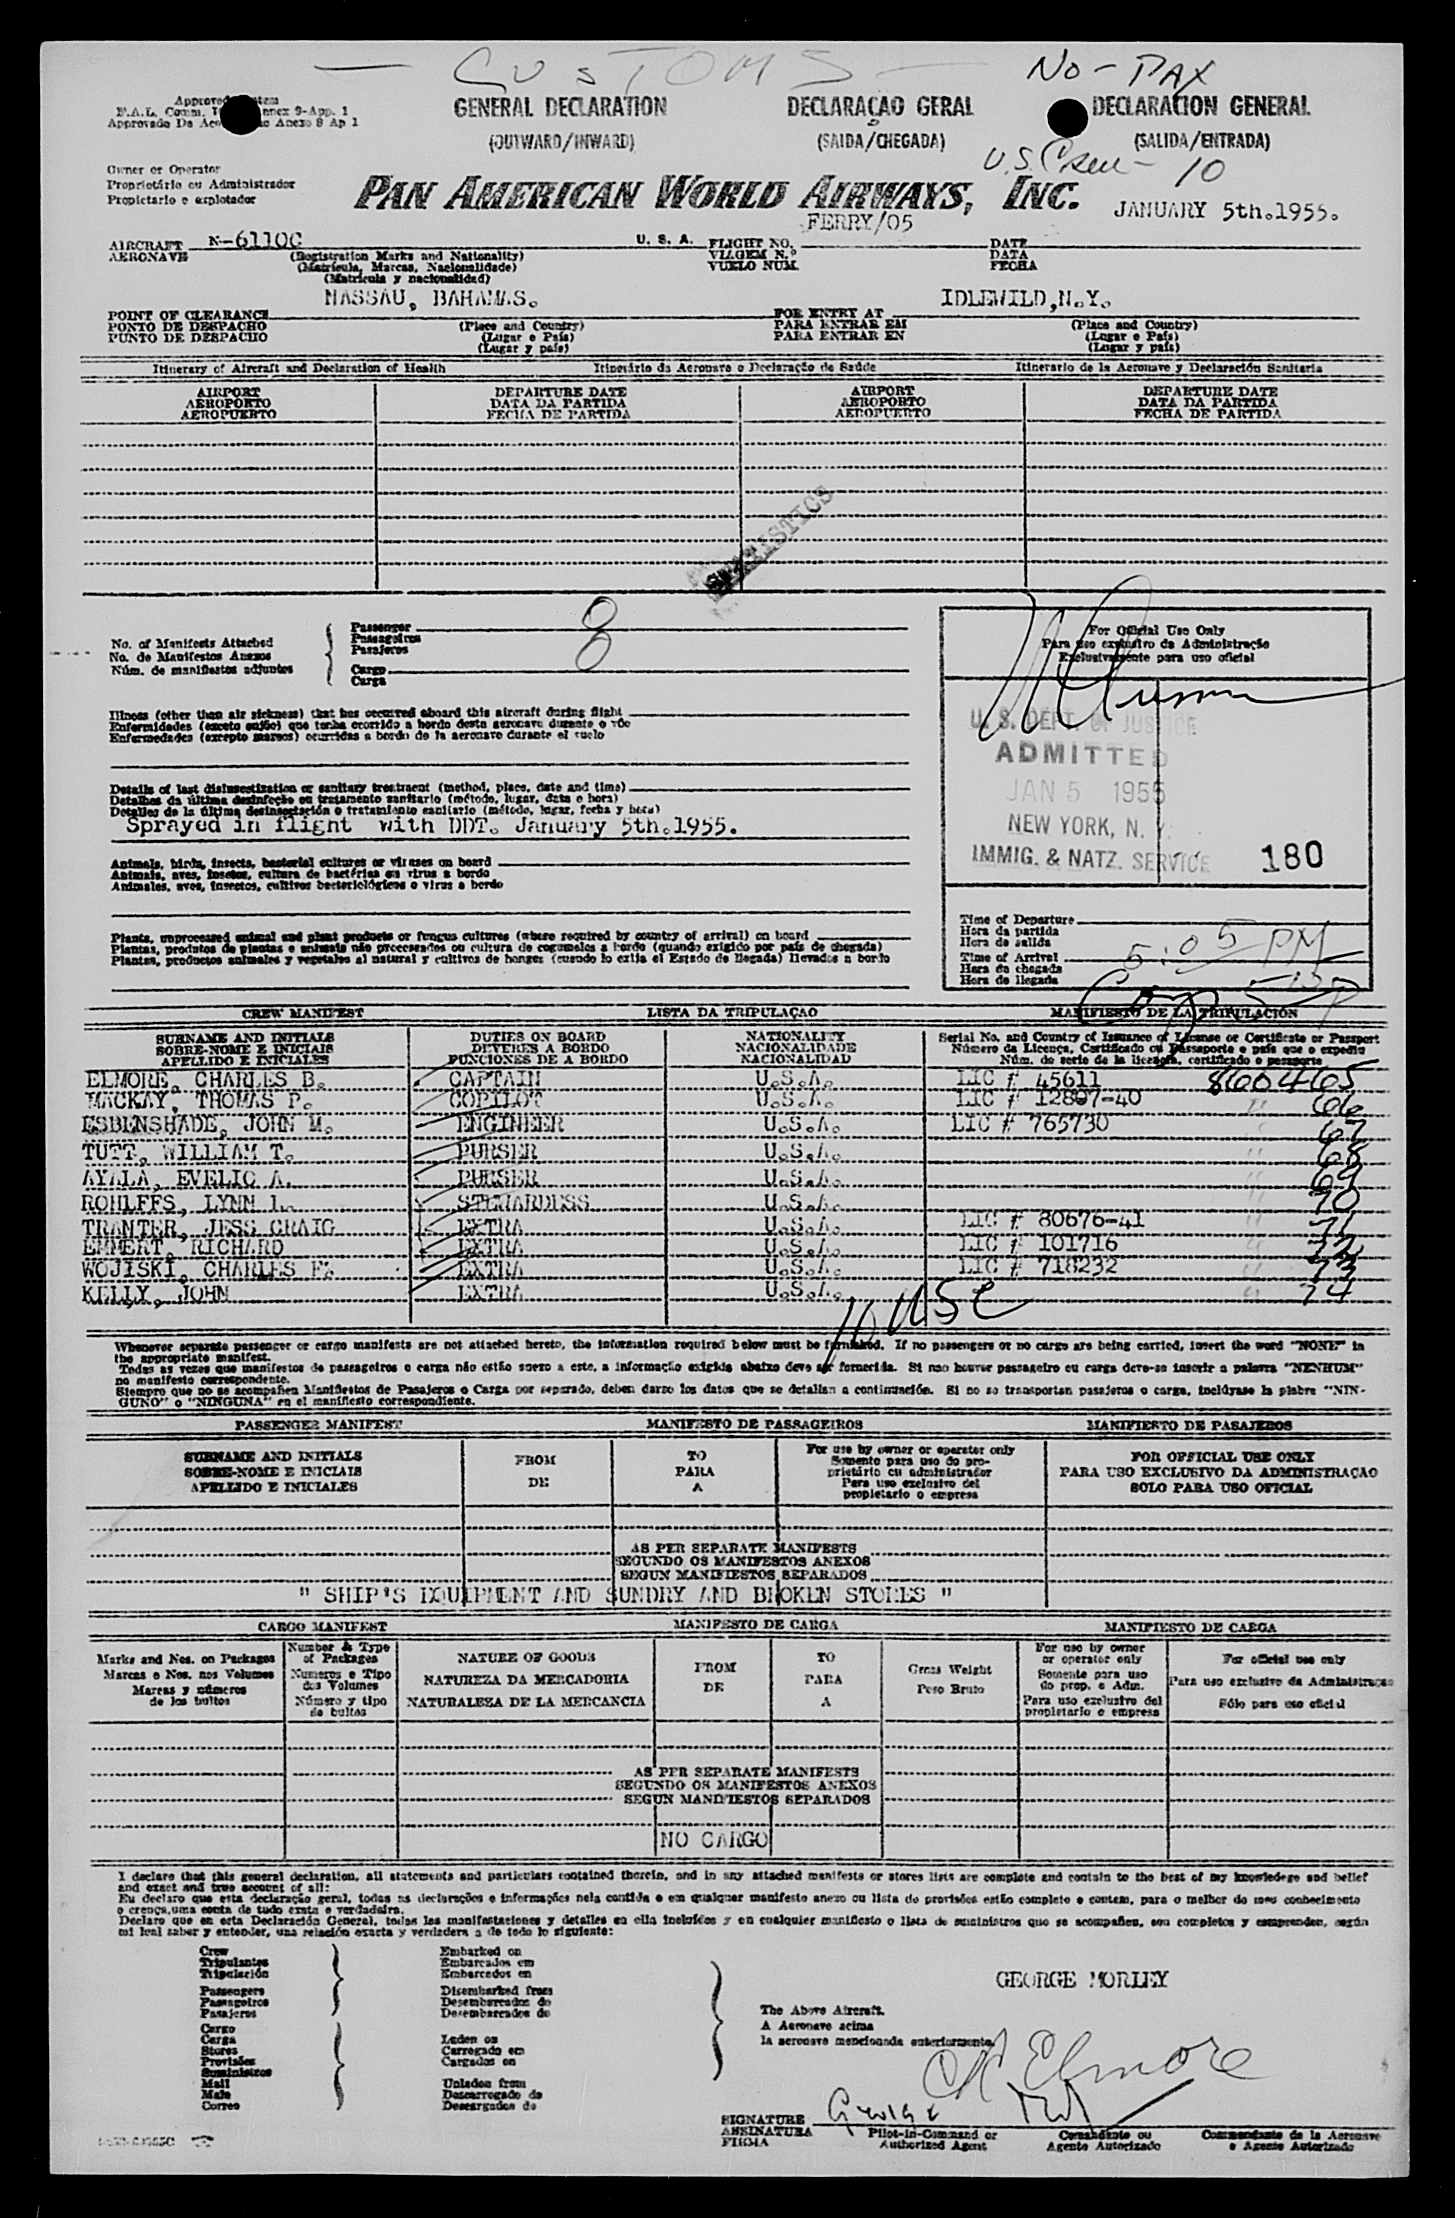 CUSTOMS
No - PAX
GENERAL DECLARATION
(OUTWARD/INWARD)
DECLARAÇÃO GERAL
(SAIDA/CHEGADA)
DECLARACION GENERAL
(SALIDA/ENTRADA)
U.S. Crew - 10
Owner or Operator
Proprietário ou Administrador
Propietario e explotador
PAN AMERICAN WORLD AIRWAYS, INC.
JANUARY 5th.1955.
FERRY/05
AIRCRAFT N-6110C U. S. A. FLIGHT NO. DATE
AERONAVE (Registration Marks and Nationality) VIAGEM N.º DATA
(Matrícula, Marcas, Nacionalidade) VUELO NUM. FECHA
(Matrícula y nacionalidad)
NASSAU, BAHAMAS. IDLEWILD,N.Y.
POINT OF CLEARANCE FOR ENTRY AT
PONTO DE DESPACHO (Place and Country) PARA ENTRAR EM (Place and Country)
PUNTO DE DESPACHO (Lugar e País) PARA ENTRAR EN (Lugar e País)
(Lugar y país) (Lugar y país)
Itinerary of Aircraft and Declaration of Health Itinerário da Aeronave e Declaração de Saúde Itinerario de la Aeronave y Declaración Sanitaria
AIRPORT DEPARTURE DATE AIRPORT DEPARTURE DATE
AEROPORTO DATA DA PARTIDA AEROPORTO DATA DA PARTIDA
AEROPUERTO FECHA DE PARTIDA AEROPUERTO FECHA DE PARTIDA
STATISTICS
No. of Manifests Attached
No. de Manifestos Anexos
Núm. de manifiestos adjuntos
Passenger
Passageiros
Pasajeros
Cargo
Carga
8
For Official Use Only
Para uso exclusivo da Administração
Exclusivamente para uso oficial
Illness (other than air sickness) that has occurred aboard this aircraft during flight
Enfermidades (exceto enjôo) que tenha ocorrido a bordo desta aeronave durante o vôo
Enfermedades (excepto mareos) ocurridas a bordo de la aeronave durante el vuelo
U. S. DEPT. OF JUSTICE
ADMITTED
JAN 5 1955
NEW YORK, N. Y.
IMMIG. & NATZ. SERVICE 180
Details of last disinsectization or sanitary treatment (method, place, date and time)
Detalhes da última desinfeção ou tratamento sanitario (método, lugar, data e hora)
Detalles de la última desinsectación o tratamiento sanitario (método, lugar, fecha y hora)
Sprayed in flight with DDT. January 5th.1955.
Animals, birds, insects, bacterial cultures or viruses on board
Animais, aves, insetos, cultura de bactérias ou virus a bordo
Animales, aves, insectos, cultivos bacteriológicos o virus a bordo
Plants, unprocessed animal and plant products or fungus cultures (where required by country of arrival) on board
Plantas, produtos de plantas e animais não processados ou cultura de cogumelos a bordo (quando exigido por país de chegada)
Plantas, productos animales y vegetales al natural y cultivos de hongos (cuando lo exija el Estado de llegada) llevados a bordo
Time of Departure
Hora da partida
Hora de salida
Time of Arrival
Hora da chegada
Hora de llegada
5:05 PM
CREW MANIFEST LISTA DA TRIPULAÇAO MANIFIESTO DE LA TRIPULACIÓN
SURNAME AND INITIALS DUTIES ON BOARD NATIONALITY Serial No. and Country of Issuance of License or Certificate or Passport
SOBRE-NOME E INICIAIS DEVERES A BORDO NACIONALIDADE Número da Licença, Certificado ou Passaporte e país que o expediu
APELLIDO E INICIALES FUNCIONES DE A BORDO NACIONALIDAD Núm. de serie de la licencia, certificado o pasaporte
ELMORE, CHARLES B. CAPTAIN U.S.A. LIC # 45611 860465
MACKAY, THOMAS P. COPILOT U.S.A. LIC # 12807-40 " 66
ESBENSHADE, JOHN M. ENGINEER U.S.A. LIC # 765730 " 67
TUTT, WILLIAM T. PURSER U.S.A. " 68
AYALA, EVELIO A. PURSER U.S.A. " 69
ROHLFFS, LYNN L. STEWARDESS U.S.A. " 70
TRANTER, JESS CRAIG EXTRA U.S.A. LIC # 80676-41 " 71
EMMERT, RICHARD EXTRA U.S.A. LIC # 101716 " 72
WOJISKI, CHARLES F. EXTRA U.S.A. LIC # 718232 " 73
KELLY, JOHN EXTRA U.S.A. " 74
10 USC
Whenever separate passenger or cargo manifests are not attached hereto, the information required below must be furnished. If no passengers or no cargo are being carried, insert the word "NONE" in
the appropriate manifest.
Todas as vezes que manifestos de passageiros e carga não estão anexo a este, a informação exigida abaixo deve ser fornecida. Si nao houver passageiro ou carga deve-se inserir a palavra "NENHUM"
no manifesto correspondente.
Siempre que no se acompañen Manifiestos de Pasajeros o Carga por separado, deben darse los datos que se detallan a continuación. Si no se transportan pasajeros o carga, inclúyase la plabre "NIN-
GUNO" o "NINGUNA" en el manifiesto correspondiente.
PASSENGER MANIFEST MANIFESTO DE PASSAGEIROS MANIFIESTO DE PASAJEROS
SURNAME AND INITIALS FROM TO For use by owner or operator only FOR OFFICIAL USE ONLY
SOBRE-NOME E INICIAIS DE PARA Somente para uso do pro- PARA USO EXCLUSIVO DA ADMINISTRAÇAO
APELLIDO E INICIALES A prietário ou administrador SOLO PARA USO OFICIAL
Para uso exclusivo del
propietario o empresa
AS PER SEPARATE MANIFESTS
SEGUNDO OS MANIFESTOS ANEXOS
SEGUN MANIFIESTOS SEPARADOS
" SHIP'S EQUIPMENT AND SUNDRY AND BROKEN STORES "
CARGO MANIFEST MANIFESTO DE CARGA MANIFIESTO DE CARGA
Marks and Nos. on Packages
Marcas e Nos. nos Volumes
Marcas y números
de los bultos
Number & Type
of Packages
Numeros e Tipo
dos Volumes
Número y tipo
de bultos
NATURE OF GOODS
NATUREZA DA MERCADORIA
NATURALEZA DE LA MERCANCIA
FROM
DE
TO
PARA
A
Gross Weight
Peso Bruto
For use by owner
or operator only
Somente para uso
do prop. e Adm.
Para uso exclusivo del
propietario o empresa
For official use only
Para uso exclusivo da Administraçao
Sólo para uso oficial
AS PER SEPARATE MANIFESTS
SEGUNDO OS MANIFESTOS ANEXOS
SEGUN MANIFIESTOS SEPARADOS
NO CARGO
I declare that this general declaration, all statements and particulars contained therein, and in any attached manifests or stores lists are complete and contain to the best of my knowledge and belief
and exact and true account of all:
Eu declaro que esta declaração geral, todas as declarações e informações nela contida e em qualquer manifesto anexo ou lista de provisões estão completo e contem, para o melhor do meu conhecimento
e crença,uma conta de tudo exata e verdadeira.
Declaro que en esta Declaración General, todas las manifestaciones y detalles en ella incluídos y en cualquier manifiesto o lista de suministros que se acompañen, son completos y comprenden, según
mi leal saber y entender, una relación exacta y verdadera a de todo lo siguiente:
Crew
Tripulantes
Tripulación
Passengers
Passageiros
Pasajeros
Cargo
Carga
Stores
Provisões
Suministros
Mail
Mala
Correo
Embarked on
Embarcados em
Embarcados en
Disembarked from
Desembarcados do
Desembarcados de
Laden on
Carregado em
Cargados en
Unladen from
Descarregado da
Descargados de
The Above Aircraft.
A Aeronave acima
la aeronave mencionada anteriormente.
GEORGE MORLEY
CB Elmore
SIGNATURE
ASSINATURA
FIRMA
George
Pilot-in-Command or
Authorized Agent
Comandante ou
Agente Autorizado
Commandante de la Aeronave
o Agente Autorizado